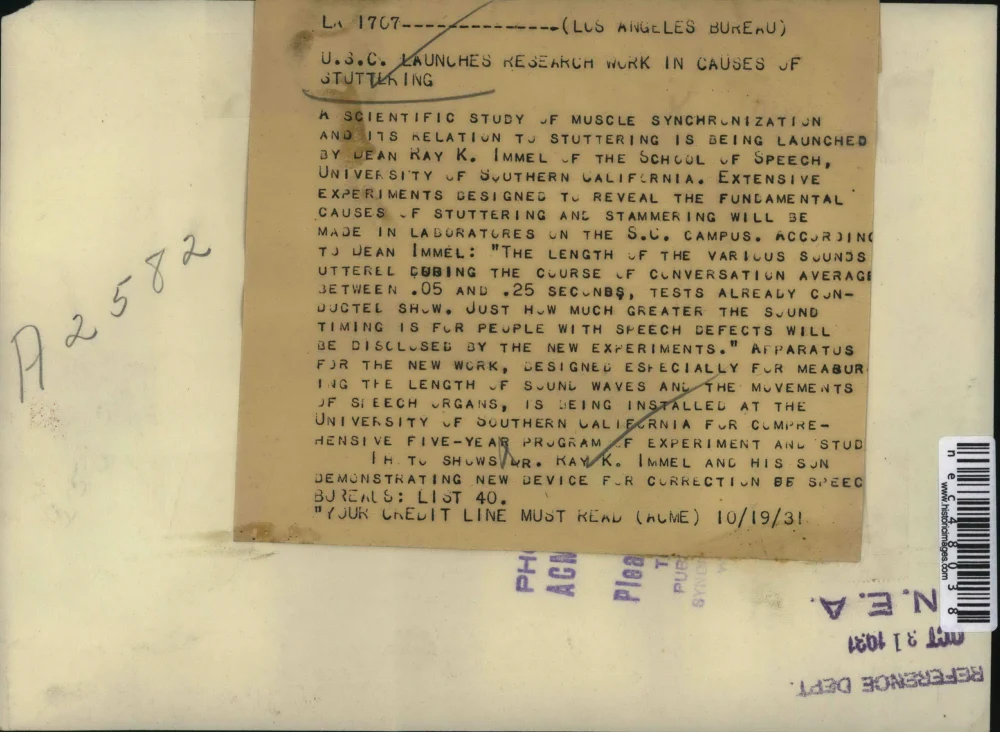 LA 1707----------------(LOS ANGELES BUREAU)
U.S.C. LAUNCHES RESEARCH WORK IN CAUSES OF
STUTTERING
A SCIENTIFIC STUDY OF MUSCLE SYNCHRONIZATION
AND ITS RELATION TO STUTTERING IS BEING LAUNCHED
BY DEAN RAY K. IMMEL OF THE SCHOOL OF SPEECH,
UNIVERSITY OF SOUTHERN CALIFORNIA. EXTENSIVE
EXPERIMENTS DESIGNED TO REVEAL THE FUNDAMENTAL
CAUSES OF STUTTERING AND STAMMERING WILL BE
MADE IN LABORATORES ON THE S.C. CAMPUS. ACCORDING
TO DEAN IMMEL: "THE LENGTH OF THE VARIOUS SOUNDS
UTTERED DURING THE COURSE OF CONVERSATION AVERAGE
BETWEEN .05 AND .25 SECONDS, TESTS ALREADY CON-
DUCTED SHOW. JUST HOW MUCH GREATER THE SOUND
TIMING IS FOR PEOPLE WITH SPEECH DEFECTS WILL
BE DISCLOSED BY THE NEW EXPERIMENTS." APPARATUS
FOR THE NEW WORK, DESIGNED ESPECIALLY FOR MEASUR
ING THE LENGTH OF SOUND WAVES AND THE MOVEMENTS
OF SPEECH ORGANS, IS BEING INSTALLED AT THE
UNIVERSITY OF SOUTHERN CALIFORNIA FOR COMPRE-
HENSIVE FIVE-YEAR PROGRAM OF EXPERIMENT AND STUD
SHOWS DR. RAY K. IMMEL AND HIS SON
DEMONSTRATING NEW DEVICE FOR CORRECTION OF SPEEC
BUREAUS: LIST 40.
"YOUR CREDIT LINE MUST READ (ACME) 10/19/31
A2582
nec48038
www.historicimages.com
N.E.A.
OCT 31 1931
REFERENCE DEPT.